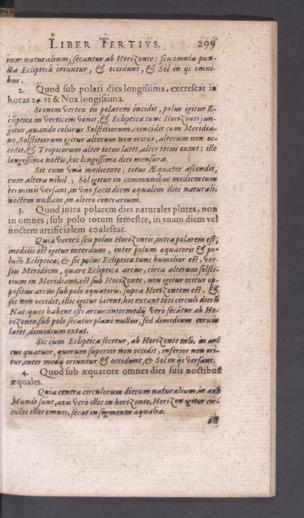 LIBER TERTIVS. 299
rum naturalium, secantur ab Horizonte: seu omnia pun-
cta Eclipticæ oriuntur, & occidunt, & Sol in ijs omni-
bus.
2. Quod sub polari dies longissima, excrescat in
horas 24. vt & Nox longissima.
Si enim vertex in polarem incidit, polus igitur E-
clipticæ in verticem venit, & Ecliptica tunc Horizonti jun-
gitur, quando colurus Solstitiorum, coincidit cum Meridia-
no, Solstitiorum igitur alterum non oritur, alterum non oc-
cidit, & Tropicorum alter totus latet, alter totus extat: ille
longissima noctis, hic longissima diei mensura.
Sic cum vna medietate, totus Æquator ascendit,
cum altera nihil; Sol igitur in communibus medietatum
terminis versans, in vno facit diem æqualem diei naturali,
noctem nullam, in altero contrarium.
3. Quod intra polarem dies naturales plures, non
in omnes, sub polo totum semestre, in vnum diem vel
noctem artificialem coalescat.
Quia vertex seu polus Horizontis, intra polarem est,
medius est igitur interdum, inter polum æquatoris & po-
lum Eclipticæ, & sic polus Eclipticæ tunc humilior est, ver-
sus Meridiem, quare Eclipticæ arcus, circa alterum solsti-
tium in Meridiano, est sub Horizonte, non igitur oritur, op-
positus arcus sub polo æquatoris, supra Horizontem est, &
sic non occidit, illic igitur latent, hic extant toti circuli diei
Nat: quos habent isti arcus: intermedij vero secantur ab Ho-
rizonte. sub polo secatur planè nullus, sed dimidium omnium
latet, dimidium extat.
Sic cum Ecliptica secetur, ab Horizonte tali, in ar-
cus quatuor, quorum superior non occidit, inferior non ori-
tur, inter medij oriuntur & occidunt, & Sol in ijs versans.
4. Quod sub æquatore omnes dies suis noctibus
æquales.
Quia centra circulorum dierum naturalium, in axe
Mundi sunt, axis vero illic in horizonte, Horizon igitur cir-
culos illos omnes, secat in segmenta æqualia.